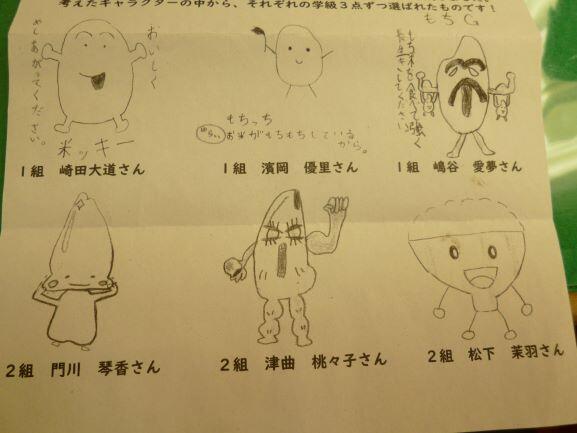 考えたキャラクターの中から、それぞれの学級3点ずつ選ばれたものです！
おいしく
めしあがってください。
米ッキー
1組　崎田大道さん
もちっち
お米がもちもちしている
から。
1組　濱岡　優里さん
もちG
もち米を食べて強く
長生きしてください
1組　嶋谷　愛夢さん
2組　門川　琴香さん
2組　津曲　桃々子さん
2組　松下　茉羽さん